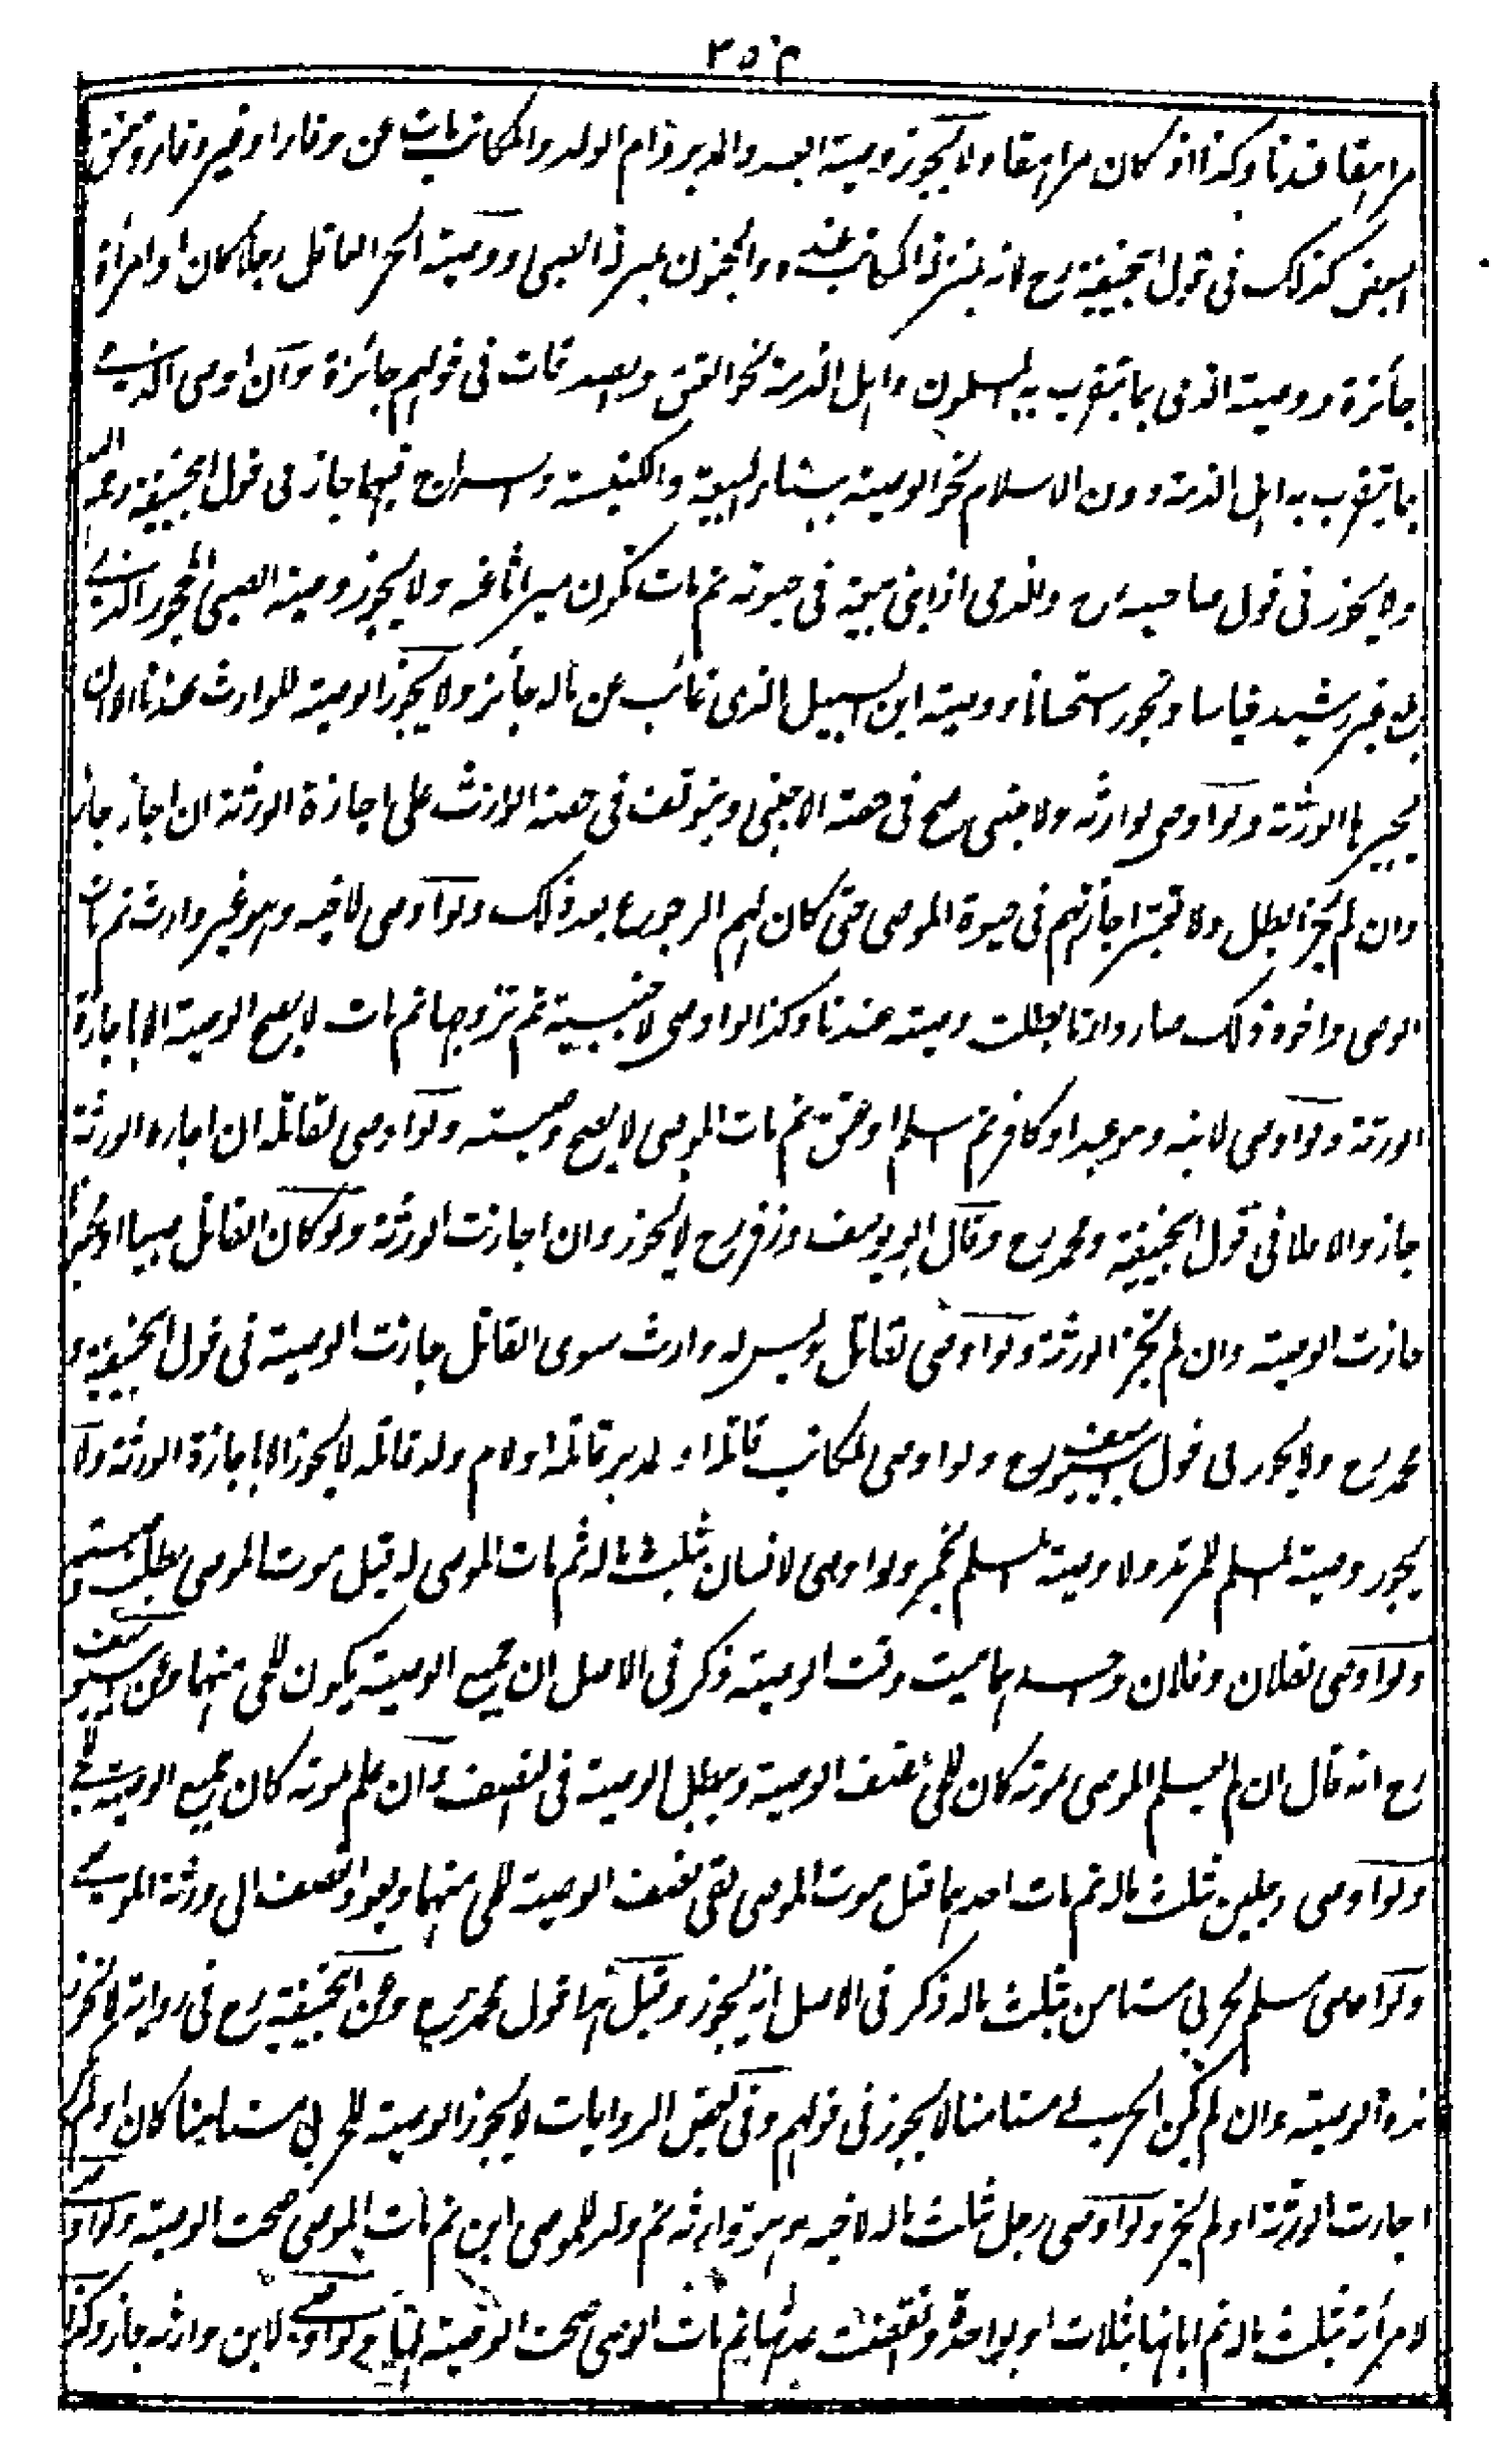 ٣٥٢
مراهقا عندنا وكذا اذا كان مراهقا ولا يجوز وصية العبد والمدبر وام الولد والمكاتب مات عن وفاء او غير وفاء ومعتق
البعض كذلك فى قول ابيحنيفة رح لانه بمنزلة المكاتب عنده والمجنون بمنزلة الصبى ووصية الحر العاقل رجلا كان او امرأة
جائزة ووصية الذمى بما يتقرب به المسلمون واهل الذمة نحو العتق والصدقات فى قولهم جائزة وان اوصى الذمى
بما يتقرب به اهل الذمة دون الاسلام نحو الوصية ببناء البيعة والكنيسة والسراج فيها جاز فى قول ابيحنيفة رحمه الله
ولا يجوز فى قول صاحبيه رح والذمى اذا بنى بيعة فى حيوته ثم مات تكون ميراثا عنه ولا يجوز وصية الصبى المحجور الذى
بلغ غير رشيد قياسا وتجوز استحسانا ووصية ابن السبيل الذى غائب عن ماله جائز ولا يجوز الوصية للوارث عندنا الا ان
يجيزها الورثة ولو اوصى لوارثه ولاجنبى صح فى حصة الاجنبى ويتوقف فى حصة الوارث على اجازة الورثة ان اجاز جاز
وان لم يجز بطل ولا تعتبر اجازتهم فى حيوة الموصى حتى كان لهم الرجوع بعد ذلك ولو اوصى لاخيه وهو غير وارث ثم مات
الوصى واخوه ذلك صار وارثا بطلت وصيته عندنا وكذا لو اوصى لاجنبية ثم تزوجها ثم مات لا يصح الوصية الا باجازة
الورثة ولو اوصى لابنه وهو عبد او كافر ثم اسلم او عتق ثم مات الموصى لا يصح وصيته ولو اوصى لقاتله ان اجاز الورثة
جاز والا فلا فى قول ابيحنيفة ومحمد رح وقال ابو يوسف وزفر رح لا يجوز وان اجازت الورثة ولو كان القاتل صبيا او مجنونا
جازت الوصية وان لم تجز الورثة ولو اوصى لقاتل وليس له وارث سوى القاتل جازت الوصية فى قول ابيحنيفة و
محمد رح ولا يجوز فى قول ابى يوسف رح ولو اوصى لمكاتب قاتله او لمدبر قاتله او لام ولد قاتله لا يجوز الا باجازة الورثة ولا
يجوز وصية المسلم للمرتد ولا وصية المسلم بخمر ولو اوصى لانسان بثلث ماله ثم مات الموصى له قبل موت الموصى بطلت وصيته
ولو اوصى لفلان وفلان واحدهما ميت وقت الوصية ذكر فى الاصل ان جميع الوصية يكون للحى منهما وعن ابى يوسف
رح انه قال ان لم يعلم الموصى بموته كان للحى نصف الوصية ويبطل الوصية فى النصف وان علم بموته كان جميع الوصية للحى
ولو اوصى لرجلين بثلث ماله ثم مات احدهما قبل موت الموصى بقى نصف الوصية للحى منهما ويعود النصف الى ورثة الموصى
ولو اوصى مسلم لحربى مستامن بثلث ماله ذكر فى الاصل انه يجوز وقيل هذا قول محمد رح وعن ابيحنيفة رح فى رواية لا يجوز
هذه الوصية وان لم يكن الحربى مستامنا لا يجوز فى قولهم وفى بعض الروايات لا يجوز الوصية للحربى مستامنا كان او لم يكن
اجازت الورثة او لم يجز ولو اوصى رجل بثلث ماله لاخيه وهو وارثه ثم ولد للموصى ابن ثم مات الموصى صحت الوصية ولو اوصى
لامرأته بثلث ماله ثم ابانها بثلاث او بواحدة وانقضت عدتها ثم مات الوصى صحت الوصية لها ولو اوصى لابن وارثه جاز وكذا